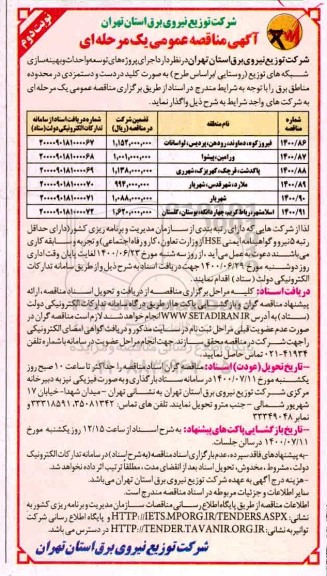 نوبت دوم
شرکت توزیع نیروی برق استان تهران
آگهی مناقصه عمومی یک مرحله ای
شرکت توزیع نیروی برق استان تهران در نظر دارد اجرای پروژه‌های توسعه و احداث و بهینه‌سازی
شبکه های توزیع (روستایی براساس طرح) به صورت کلید در دست و دستمزدی در محدوده
مناطق برق را با توجه به شرایط مندرج در اسناد از طریق برگزاری مناقصه عمومی یک مرحله ای
به شرکت های واجد شرایط به شرح ذیل واگذار نماید.
شماره مناقصه نام منطقه تضمین شرکت در مناقصه (ریال) شماره دریافت اسناد از سامانه تدارکات الکترونیکی دولت (ستاد)
۱۴۰۰/۸۶ فیروزکوه، دماوند، رودهن، پردیس، لواسانات ۱,۱۵۲,۰۰۰,۰۰۰ ۲۰۰۰۰۹۰۱۸۱۰۰۰۰۶۷
۱۴۰۰/۸۷ ورامین، پیشوا ۱,۰۰۱,۰۰۰,۰۰۰ ۲۰۰۰۰۹۰۱۸۱۰۰۰۰۶۸
۱۴۰۰/۸۸ پاکدشت، قرچک، کهریزک، شهرری ۱,۱۳۸,۰۰۰,۰۰۰ ۲۰۰۰۰۹۰۱۸۱۰۰۰۰۶۹
۱۴۰۰/۸۹ ملارد، شهرقدس، شهریار ۹۹۴,۰۰۰,۰۰۰ ۲۰۰۰۰۹۰۱۸۱۰۰۰۰۷۰
۱۴۰۰/۹۰ شهریار ۱,۰۸۸,۰۰۰,۰۰۰ ۲۰۰۰۰۹۰۱۸۱۰۰۰۰۷۱
۱۴۰۰/۹۱ اسلامشهر، رباط کریم، چهاردانگه، بوستان، گلستان ۱,۶۲۰,۰۰۰,۰۰۰ ۲۰۰۰۰۹۰۱۸۱۰۰۰۰۷۲
لذا از شرکت هایی که دارای رتبه بندی از سازمان مدیریت و برنامه ریزی کشور (دارای حداقل
رتبه ۵ نیرو و گواهینامه ایمنی HSE از وزارت تعاون، کار و رفاه اجتماعی) و تجربه و سابقه کاری
می‌باشند دعوت به عمل می آید، از روز سه شنبه مورخ ۱۴۰۰/۰۶/۲۳ لغایت پایان وقت اداری
روز دوشنبه مورخ ۱۴۰۰/۰۶/۲۹ جهت دریافت اسناد به شرح ذیل و از طریق سامانه تدارکات
الکترونیکی دولت (ستاد) اقدام نمایند:
دریافت اسناد: کلیه مراحل برگزاری مناقصه از دریافت و تحویل اسناد مناقصه، ارائه
پیشنهاد مناقصه گران و بازگشایی پاکت ها از طریق درگاه سامانه تدارکات الکترونیکی دولت
(ستاد) به آدرس WWW.SETADIRAN.IR انجام خواهد شد. لازم است مناقصه گران در
صورت عدم عضویت قبلی مراحل ثبت نام در سایت مذکور و دریافت گواهی امضای الکترونیکی
را جهت شرکت در مناقصه محقق سازند. جهت انجام مراحل عضویت در سامانه با شماره تلفن
۰۲۱-۴۱۹۳۴ تماس حاصل نمایید.
-تاریخ تحویل (عودت) اسناد: مناقصه گران اسناد مناقصه را حداکثر تا ساعت ۱۰ صبح روز
یکشنبه مورخ ۱۴۰۰/۰۷/۱۱ در سامانه ستاد بارگذاری و به صورت فیزیکی نیز به دبیرخانه
مرکزی شرکت توزیع نیروی برق استان تهران به نشانی تهران - میدان شهدا- خیابان ۱۷
شهریور شمالی - جنب مترو تحویل نمایند. تلفن های تماس: ۳۵۰۸۱۳۴۲، ۳۳۳۱۸۵۹۱ و
نمابر ۳۳۳۴۹۰۴۸
-تاریخ بازگشایی پاکت های پیشنهاد: به شرح اسناد از ساعت ۱۲/۱۵ روز یکشنبه مورخ
۱۴۰۰/۰۷/۱۱ در سالن جلسات.
-به پیشنهادهای فاقد سپرده، عدم بارگزاری اسناد مناقصه (به شرح اسناد) در سامانه تدارکات الکترونیک
دولت، مشروط، مخدوش، تحویل اسناد بعد از انقضای مدت، مطلقا ترتیب اثر داده نخواهد شد.
-هزینه درج آگهی به عهده شرکت توزیع نیروی برق استان تهران می‌باشد.
سایر اطلاعات و جزئیات مربوطه در اسناد مناقصه مندرج است.
اطلاعات مناقصه از طریق پایگاه اطلاع رسانی مناقصات سازمان مدیریت و برنامه ریزی کشور به
نشانی: HTTP://IETS.MPORG.IR/TENDERS.ASPX و پایگاه اطلاع رسانی شرکت
توانیر به نشانی: HTTP://TENDER.TAVANIR.ORG.IR در دسترس می باشد.
شرکت توزیع نیروی برق استان تهران